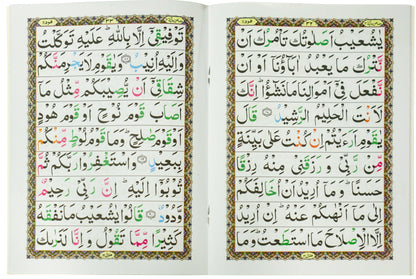 يٰشُعَيْبُ اَصَلٰوتُكَ تَاْمُرُكَ اَنْ
نَّتْرُكَ مَا يَعْبُدُ اٰبَآؤُنَاۤ اَوْ اَنْ
نَّفْعَلَ فِيْۤ اَمْوَالِنَا مَا نَشٰٓؤُا ؕ اِنَّكَ
لَاَنْتَ الْحَلِيْمُ الرَّشِيْدُ قَالَ
يٰقَوْمِ اَرَءَيْتُمْ اِنْ كُنْتُ عَلٰى بَيِّنَةٍ
مِّنْ رَّبِّيْ وَ رَزَقَنِيْ مِنْهُ رِزْقًا
حَسَنًا ؕ وَ مَاۤ اُرِيْدُ اَنْ اُخَالِفَكُمْ
اِلٰى مَاۤ اَنْهٰىكُمْ عَنْهُ ؕ اِنْ اُرِيْدُ
اِلَّا الْاِصْلَاحَ مَا اسْتَطَعْتُ ؕ وَ مَا
تَوْفِيْقِيْۤ اِلَّا بِاللّٰهِ ؕ عَلَيْهِ تَوَكَّلْتُ
وَ اِلَيْهِ اُنِيْبُ وَ يٰقَوْمِ لَا يَجْرِمَنَّكُمْ
شِقَاقِيْۤ اَنْ يُّصِيْبَكُمْ مِّثْلُ مَاۤ
اَصَابَ قَوْمَ نُوْحٍ اَوْ قَوْمَ هُوْدٍ
اَوْ قَوْمَ صٰلِحٍ ؕ وَ مَا قَوْمُ لُوْطٍ مِّنْكُمْ
بِبَعِيْدٍ وَ اسْتَغْفِرُوْا رَبَّكُمْ ثُمَّ
تُوْبُوْۤا اِلَيْهِ ؕ اِنَّ رَبِّيْ رَحِيْمٌ
وَّدُوْدٌ قَالُوْا يٰشُعَيْبُ مَا نَفْقَهُ
كَثِيْرًا مِّمَّا تَقُوْلُ وَ اِنَّا لَنَرٰىكَ